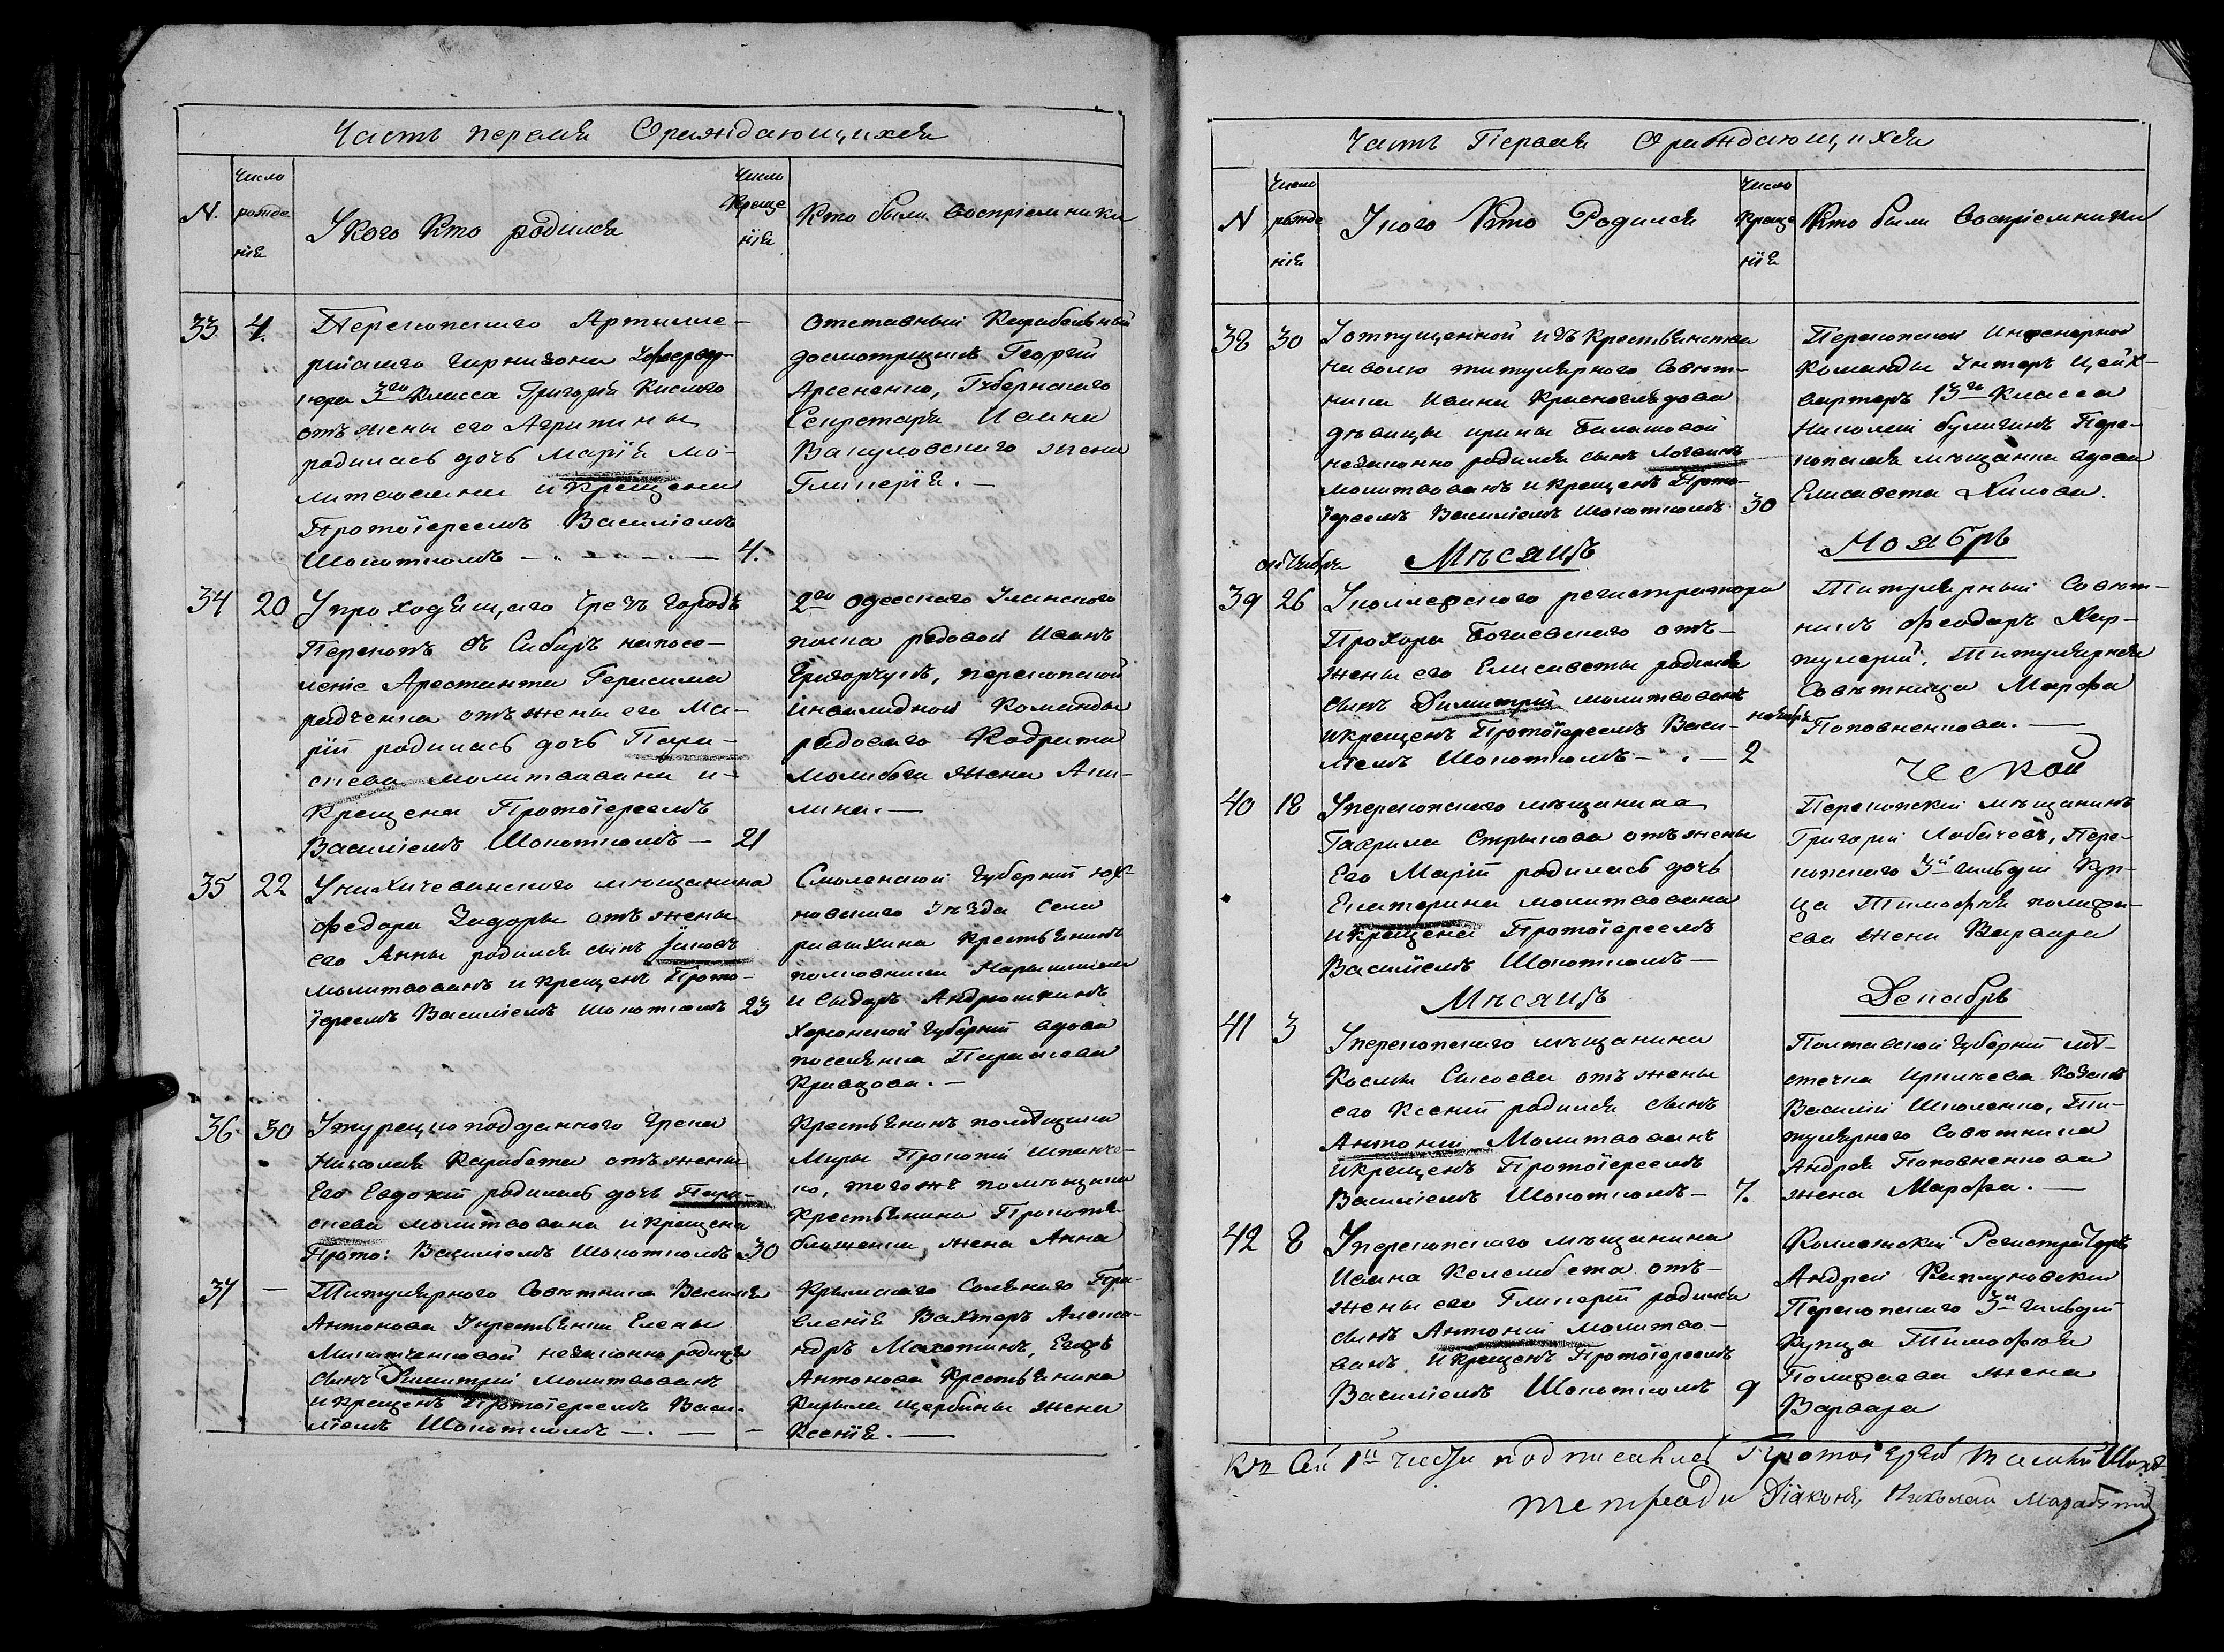 Часть первая О раждающихся
N.
Число рожденія
У кого кто родился
Число Крещенія
Кто были восприемники
33
4.
Перекопскаго Артилле-
рійскаго гарнизона
3го Класса Григорія Кислого
отъ жены его Агрипины
родилась дочь Марія мо-
литвована и крещена
Протоіереемъ Василіемъ
Шокоткомъ — 4.
Отставный Карабельный
досмотрщикъ Георгій
Арсененко, Губернскаго
Секретаря Ивана
Вакуловскаго жена
Гликерія. —
34
20
У проходящаго чрезъ городъ
Перекопъ въ Сибирь на посе-
леніе Арестанта Герасима
радченка отъ жены его Ма-
ріи родилась дочь Пара-
скева молитвована и-
крещена Протоіереемъ
Василіемъ Шокоткомъ — 21
2го Одесскаго Уланского
полка рядовой Иванъ
Григорчукъ, перекопской
инвалидной Команды
рядоваго Кодрата
Молибоги жена Аку-
лина. —
35
22
У нахичеванского мещанина
Федора Задоры отъ жены
его Анны родился сынъ Іаковъ
молитвованъ и крещенъ Прото-
іереемъ Василіемъ Шокоткомъ 23
Смоленской Губерніи юх-
новскаго Уезда села
крестьянинъ
полковника Нарышкина
и Сидоръ Андрюшкинъ
Херсонской Губерніи вдова
поселянка Параскева
Кравцова. —
36
30
У турецкоподданного Грека
Николая Карабета отъ жены
Его Евдокіи родилась дочь Пара-
скева молитвована и крещена
Прото: Василіемъ Шокоткомъ 30
Крестьянинъ помещика
Миры Прокопій Шпанче-
ко, тогоже помещика
крестьянина Прокопія
жена Анна
37
—
Титулярного Советника Василія
Антонова У крестьянки Елены
незаконно родился
сынъ Димитрій молитвованъ
и крещенъ Протоіереемъ Васи-
ліемъ Шокоткомъ — . — -
Крымскаго Солянаго Пра-
вленія Вахтеръ Алекса-
ндръ Махоткинъ, Егоръ
Антонова Крестьянина
Кирыла Щербины жена
Ксенія. —
Часть Первая О раждающихся
N
Число рожденія
У кого Кто Родился
Число Крещенія
Кто были восприемники
38
30
У отпущенной изъ Крестьянства
на волю титулярного Совет-
ника Ивана Красноглядова
девицы ирины Балашовой
незаконно родился сынъ Логвинъ
молитвованъ и крещенъ Прото-
іереемъ Василіемъ Шокоткомъ 30
Перекопской Инженерной
Команды Унтеръ Цейх-
вартеръ 13го Класса
Николай булыгинъ Пере-
копская мещанка вдова
Елисавета Хилова.
октября Месяцъ Ноябрь
39
26
У колежского регистратора
Прохора Богаевского отъ-
жены его Елисаветы родился
сынъ Димитрій молитвованъ
и крещенъ Протоіереемъ Васи- ноября
ліемъ Шокоткомъ — . — 2
Титулярный Совет-
никъ Феодоръ Хар-
Титулярная
Советница Марфа
Поповненкова. —
ческой
40
18
У перекопского мещанина
Гаврила Стрыкова отъ жены
Его Маріи родилась дочь
Екатерина молитвована
и крещена Протоіереемъ
Василіемъ Шокоткомъ —
Перекопскій мещанинъ
Григорій Лобачевъ, Пере-
копского 3й гильдіи Куп-
ца Тимофея полифа-
ева жена Варвара
Месяцъ Декабрь
41
3
У перекопского мещанина
Косьмы Сысоева отъ жены
его Ксеніи родился сынъ
Антоній Молитвованъ
и крещенъ Протоіереемъ
Василіемъ Шокоткомъ — 7.
Полтавской Губерніи ме-
стечка Ирклеева Козакъ
Василій Школенко, Ти-
тулярного Советника
Андрея Поповненкова
жена Марфа. —
42
8
У перекопскаго мещанина
Ивана Келембета отъ-
жены его Гликеріи родился
сынъ Антоній Молитво-
ванъ и крещенъ Протоіереемъ
Василіемъ Шокоткомъ 9
Коллежскій Регистраторъ
Андрей Каплуновскій
Перекопскаго 3й гильдіи
Купца Тимофея
Полифаева жена
Варвара
Къ Сей 1й части подписались Протоіерей Василій Шокот
тетради Діаконъ Николай